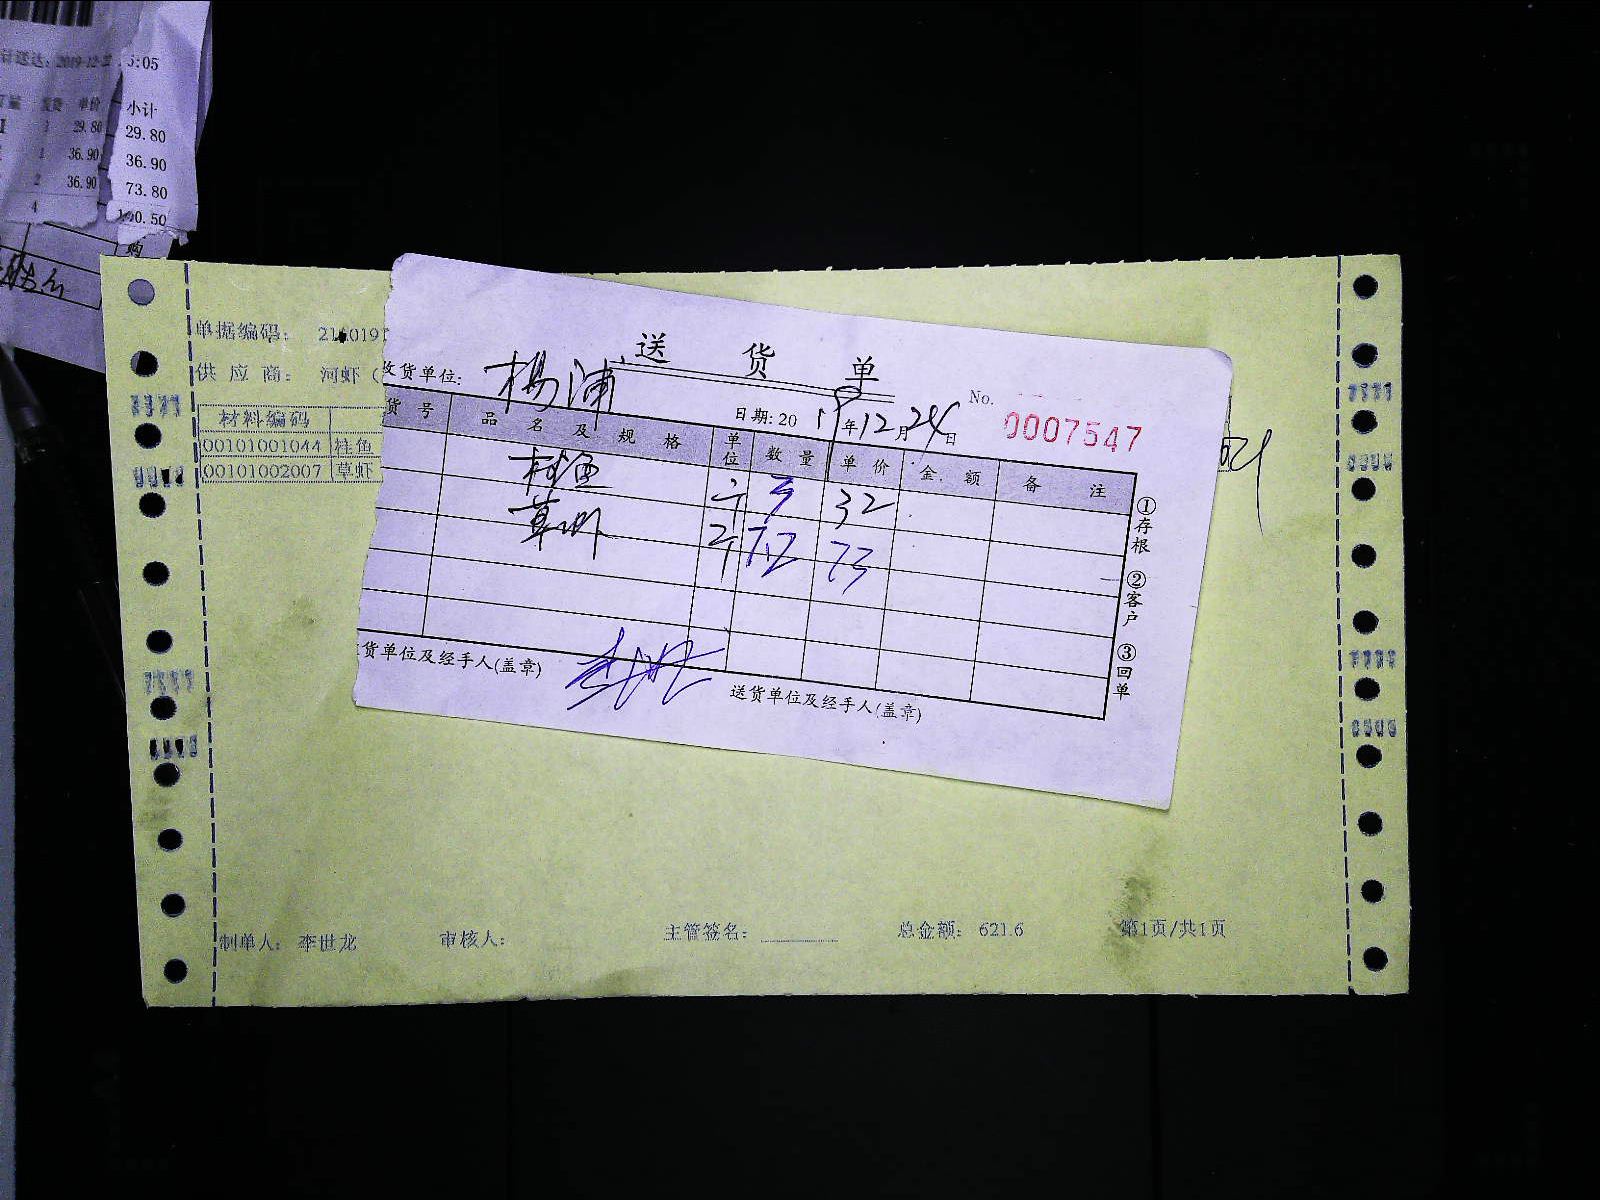 计送达: 2019-12-2 5:05
单价 小计
29.80 29.80
1 36.90 36.90
2 36.90 73.80
4 140.50
购
单据编码:
供 应 商: 河虾 (
材料编码
00101001044 桂鱼
00101002007 草虾
送 货 单
收货单位: 杨浦
日期: 2019年12月24日
No. 0007547
货 号 品 名 及 规 格 单位 数 量 单 价 金 额 备 注
桂鱼 斤 5 32
草虾 斤 7.2 73
①存根 ②客户 ③回单
货单位及经手人(盖章)
送货单位及经手人(盖章)
制单人: 李世龙 审核人: 主管签名: 总金额: 621.6 第1页/共1页